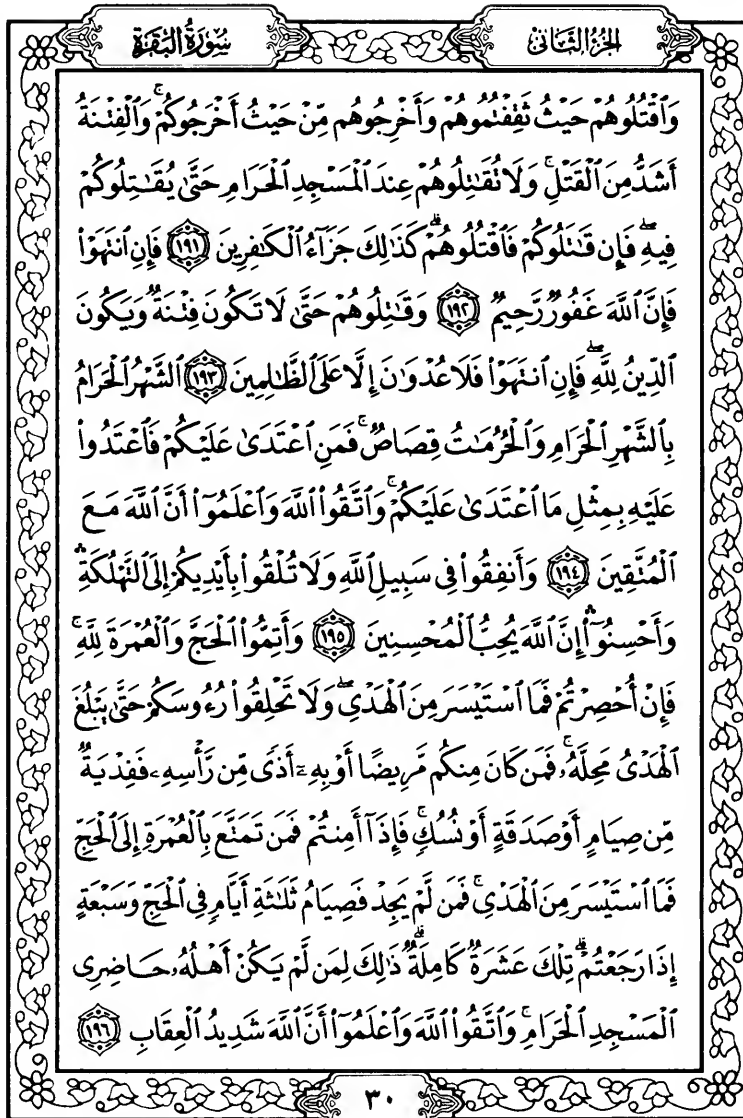 الجزء الثاني
سورة البقرة
وَٱقْتُلُوهُمْ حَيْثُ ثَقِفْتُمُوهُمْ وَأَخْرِجُوهُم مِّنْ حَيْثُ أَخْرَجُوكُمْ ۚ وَٱلْفِتْنَةُ
أَشَدُّ مِنَ ٱلْقَتْلِ ۚ وَلَا تُقَٰتِلُوهُمْ عِندَ ٱلْمَسْجِدِ ٱلْحَرَامِ حَتَّىٰ يُقَٰتِلُوكُمْ
فِيهِ ۖ فَإِن قَٰتَلُوكُمْ فَٱقْتُلُوهُمْ ۗ كَذَٰلِكَ جَزَآءُ ٱلْكَٰفِرِينَ ١٩١ فَإِنِ ٱنتَهَوْا۟
فَإِنَّ ٱللَّهَ غَفُورٌ رَّحِيمٌ ١٩٢ وَقَٰتِلُوهُمْ حَتَّىٰ لَا تَكُونَ فِتْنَةٌ وَيَكُونَ
ٱلدِّينُ لِلَّهِ ۖ فَإِنِ ٱنتَهَوْا۟ فَلَا عُدْوَٰنَ إِلَّا عَلَى ٱلظَّٰلِمِينَ ١٩٣ ٱلشَّهْرُ ٱلْحَرَامُ
بِٱلشَّهْرِ ٱلْحَرَامِ وَٱلْحُرُمَٰتُ قِصَاصٌ ۚ فَمَنِ ٱعْتَدَىٰ عَلَيْكُمْ فَٱعْتَدُوا۟
عَلَيْهِ بِمِثْلِ مَا ٱعْتَدَىٰ عَلَيْكُمْ ۚ وَٱتَّقُوا۟ ٱللَّهَ وَٱعْلَمُوٓا۟ أَنَّ ٱللَّهَ مَعَ
ٱلْمُتَّقِينَ ١٩٤ وَأَنفِقُوا۟ فِى سَبِيلِ ٱللَّهِ وَلَا تُلْقُوا۟ بِأَيْدِيكُمْ إِلَى ٱلتَّهْلُكَةِ ۛ
وَأَحْسِنُوٓا۟ ۛ إِنَّ ٱللَّهَ يُحِبُّ ٱلْمُحْسِنِينَ ١٩٥ وَأَتِمُّوا۟ ٱلْحَجَّ وَٱلْعُمْرَةَ لِلَّهِ ۚ
فَإِنْ أُحْصِرْتُمْ فَمَا ٱسْتَيْسَرَ مِنَ ٱلْهَدْىِ ۖ وَلَا تَحْلِقُوا۟ رُءُوسَكُمْ حَتَّىٰ يَبْلُغَ
ٱلْهَدْىُ مَحِلَّهُۥ ۚ فَمَن كَانَ مِنكُم مَّرِيضًا أَوْ بِهِۦٓ أَذًى مِّن رَّأْسِهِۦ فَفِدْيَةٌ
مِّن صِيَامٍ أَوْ صَدَقَةٍ أَوْ نُسُكٍ ۚ فَإِذَآ أَمِنتُمْ فَمَن تَمَتَّعَ بِٱلْعُمْرَةِ إِلَى ٱلْحَجِّ
فَمَا ٱسْتَيْسَرَ مِنَ ٱلْهَدْىِ ۚ فَمَن لَّمْ يَجِدْ فَصِيَامُ ثَلَٰثَةِ أَيَّامٍ فِى ٱلْحَجِّ وَسَبْعَةٍ
إِذَا رَجَعْتُمْ ۗ تِلْكَ عَشَرَةٌ كَامِلَةٌ ۗ ذَٰلِكَ لِمَن لَّمْ يَكُنْ أَهْلُهُۥ حَاضِرِى
ٱلْمَسْجِدِ ٱلْحَرَامِ ۚ وَٱتَّقُوا۟ ٱللَّهَ وَٱعْلَمُوٓا۟ أَنَّ ٱللَّهَ شَدِيدُ ٱلْعِقَابِ ١٩٦
٣٠